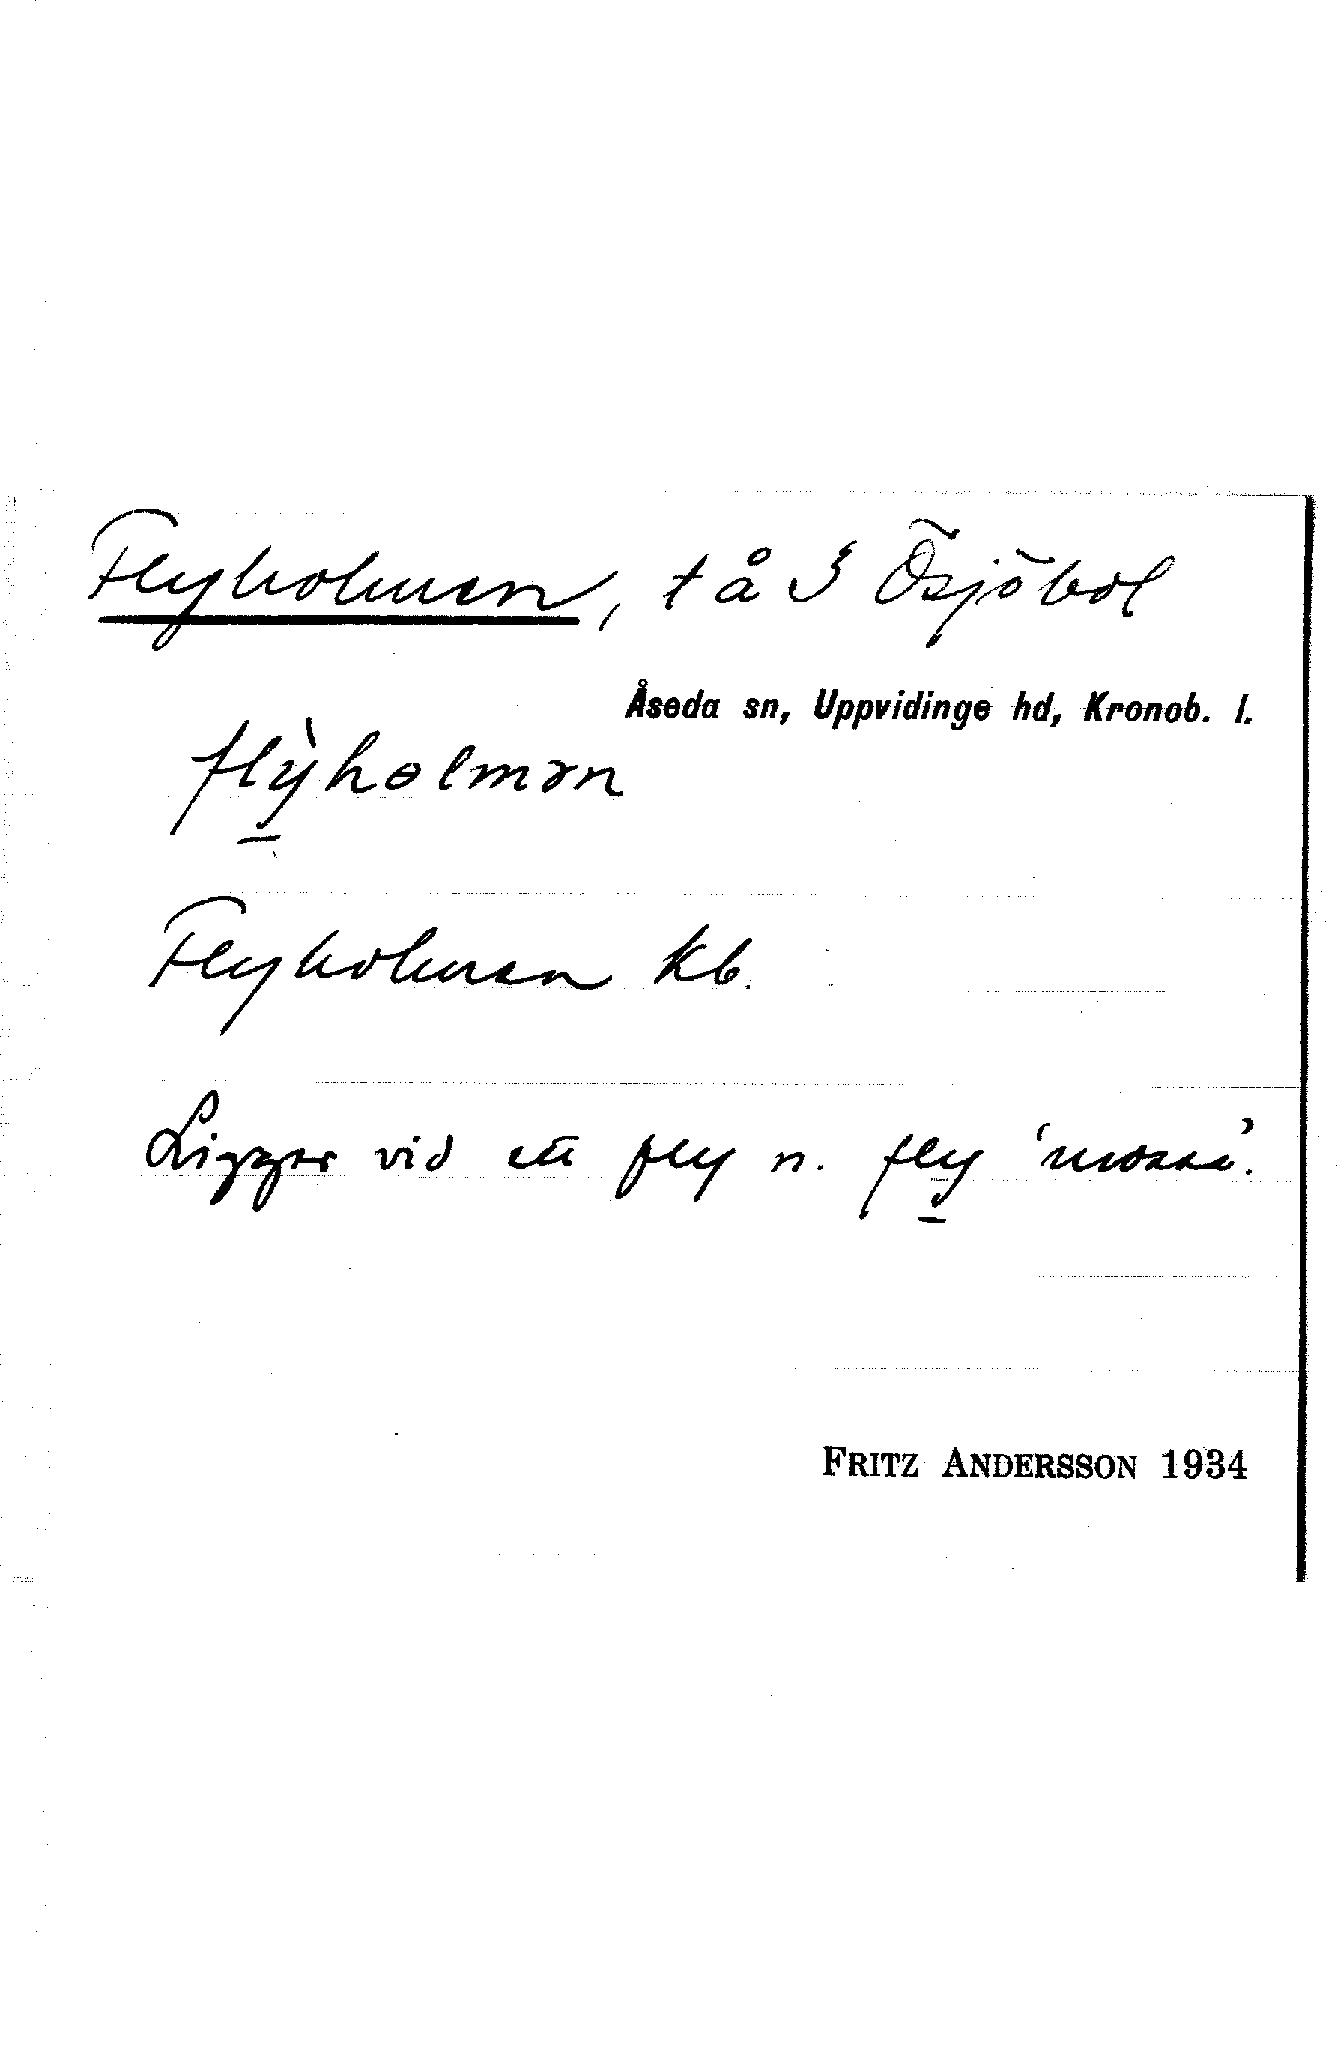 Flyholmen, t å Ösjöbol
Åseda sn, Uppvidinge hd, Kronob. l.
flỳholmən
Flyholmen Kb.
Ligger vid ett fly n. fly 'mosse'.
FRITZ ANDERSSON 1934